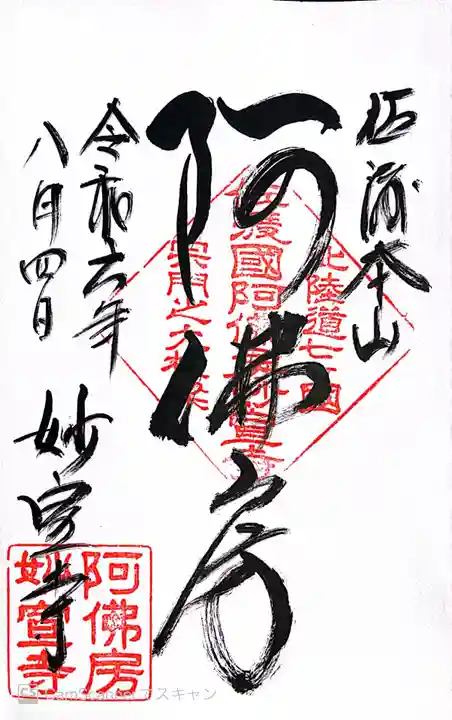 佐渡本山
阿佛房
令和六年
八月四日
妙宣寺
北陸道七ヶ國
佐渡國阿佛房妙宣寺
阿佛房
妙宣寺
CamScannerでスキャン